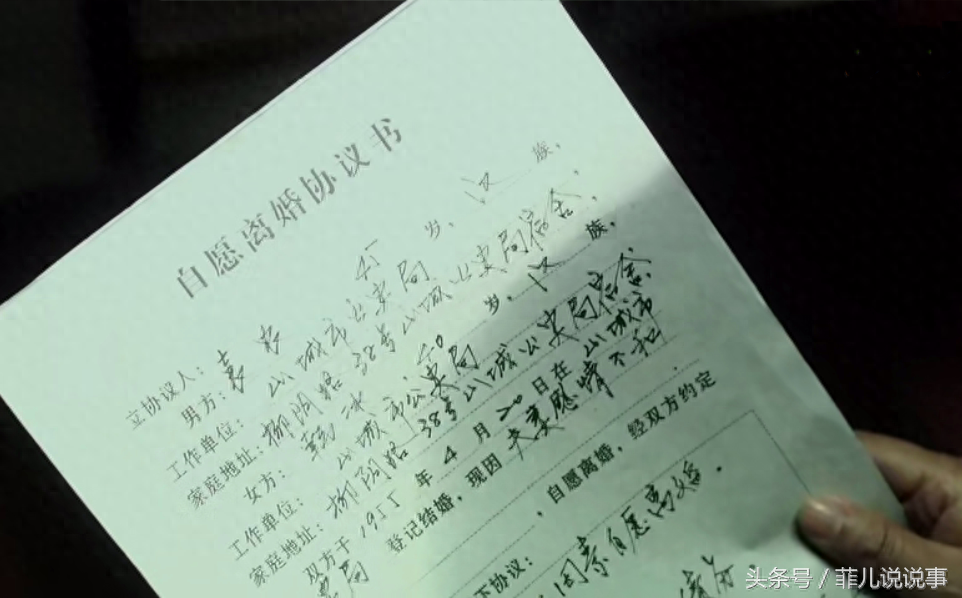 自愿离婚协议书
立协议人：
男方：袁农 45 岁，汉 族，
工作单位：山城市公安局
家庭地址：柳阴路38号山城公安局宿舍，
女方：韩冰 40 岁，汉 族，
工作单位：山城市公安局
家庭地址：柳阴路38号山城公安局宿舍，
双方于 1955 年 4 月 20 日在 山城市
登记结婚，现因 夫妻感情不和
，自愿离婚，经双方约定
下协议：
因素自愿离婚．
头条号／菲儿说说事